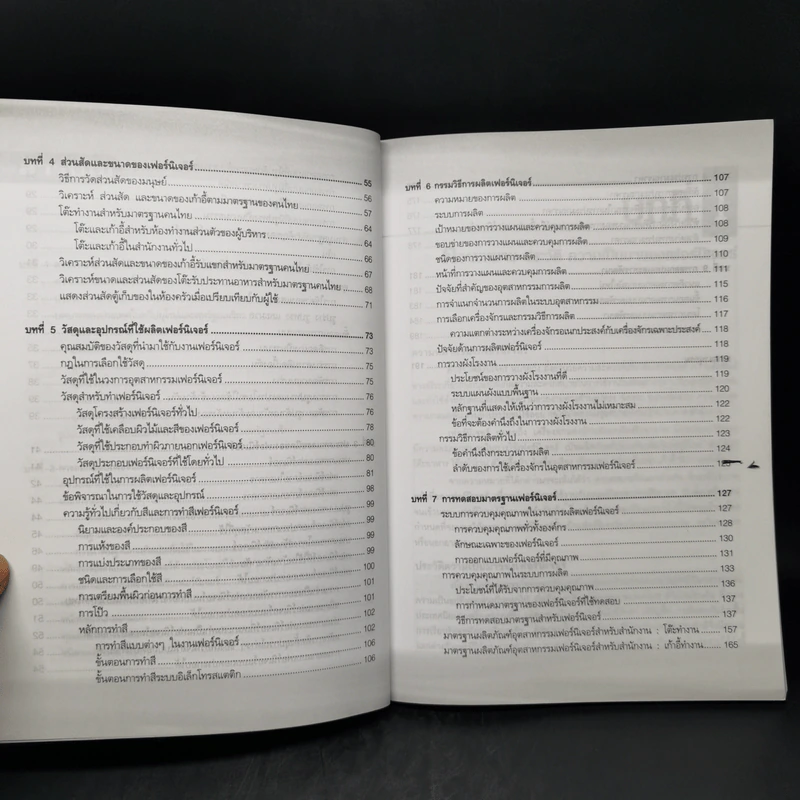 บทที่ 4 ส่วนสัดและขนาดของเฟอร์นิเจอร์
วิธีการวัดส่วนสัดของมนุษย์ 55
วิเคราะห์ ส่วนสัด และขนาดของเก้าอี้ตามมาตรฐานของคนไทย 56
โต๊ะทำงานสำหรับมาตรฐานคนไทย 57
โต๊ะและเก้าอี้สำหรับห้องทำงานส่วนตัวของผู้บริหาร 64
โต๊ะและเก้าอี้ในสำนักงานทั่วไป 64
วิเคราะห์ส่วนสัดและขนาดของเก้าอี้รับแขกสำหรับมาตรฐานคนไทย 66
วิเคราะห์ขนาดและส่วนสัดของโต๊ะรับประทานอาหารสำหรับมาตรฐานคนไทย 68
แสดงส่วนสัดตู้เก็บของในห้องครัวเมื่อเปรียบเทียบกับผู้ใช้ 71
บทที่ 5 วัสดุและอุปกรณ์ที่ใช้ผลิตเฟอร์นิเจอร์ 73
คุณสมบัติของวัสดุที่นำมาใช้กับงานเฟอร์นิเจอร์ 73
กฎในการเลือกใช้วัสดุ 75
วัสดุที่ใช้ในวงการอุตสาหกรรมเฟอร์นิเจอร์ 75
วัสดุสำหรับทำเฟอร์นิเจอร์ 76
วัสดุโครงสร้างเฟอร์นิเจอร์ทั่วไป 76
วัสดุที่ใช้เคลือบผิวไม้และสีของเฟอร์นิเจอร์ 78
วัสดุที่ใช้ประกอบทำผิวภายนอกเฟอร์นิเจอร์ 80
วัสดุประกอบเฟอร์นิเจอร์ที่ใช้โดยทั่วไป 80
อุปกรณ์ที่ใช้ในการผลิตเฟอร์นิเจอร์ 81
ข้อพิจารณาในการใช้วัสดุและอุปกรณ์ 98
ความรู้ทั่วไปเกี่ยวกับสีและการทำสีเฟอร์นิเจอร์ 99
นิยามและองค์ประกอบของสี 99
การแห้งของสี 99
การแบ่งประเภทของสี 100
ชนิดและการเลือกใช้สี 100
การเตรียมพื้นผิวก่อนการทำสี 101
การโป๊ว 101
หลักการทำสี 102
การทำสีแบบต่างๆ ในงานเฟอร์นิเจอร์ 102
ขั้นตอนการทำสี 106
ขั้นตอนการทำสีระบบอิเล็กโทรสแตติก 106
บทที่ 6 กรรมวิธีการผลิตเฟอร์นิเจอร์ 107
ความหมายของการผลิต 107
ระบบการผลิต 108
เป้าหมายของการวางแผนและควบคุมการผลิต 108
ขอบข่ายของการวางแผนและควบคุมการผลิต 109
ชนิดของการวางแผนการผลิต 110
หน้าที่การวางแผนและควบคุมการผลิต 111
ปัจจัยที่สำคัญของอุตสาหกรรมการผลิต 115
การจำแนกจำนวนการผลิตในระบบอุตสาหกรรม 116
การเลือกเครื่องจักรและกรรมวิธีการผลิต 117
ความแตกต่างระหว่างเครื่องจักรอเนกประสงค์กับเครื่องจักรเฉพาะประสงค์ 118
ปัจจัยด้านการผลิตเฟอร์นิเจอร์ 118
การวางผังโรงงาน 119
ประโยชน์ของการวางผังโรงงานที่ดี 119
ระบบแผนผังแบบพื้นฐาน 120
หลักฐานที่แสดงให้เห็นว่าการวางผังโรงงานไม่เหมาะสม 122
ข้อที่จะต้องคำนึงถึงในการวางผังโรงงาน 122
กรรมวิธีการผลิตทั่วไป 123
ข้อคำนึงถึงกระบวนการผลิต 124
ลำดับของการใช้เครื่องจักรในอุตสาหกรรมเฟอร์นิเจอร์
บทที่ 7 การทดสอบมาตรฐานเฟอร์นิเจอร์ 127
ระบบการควบคุมคุณภาพในงานการผลิตเฟอร์นิเจอร์ 127
การควบคุมคุณภาพทั่วทั้งองค์กร 128
ลักษณะเฉพาะของเฟอร์นิเจอร์ 130
การออกแบบเฟอร์นิเจอร์ที่มีคุณภาพ 131
การควบคุมคุณภาพในระบบการผลิต 133
ประโยชน์ที่ได้รับจากการควบคุมคุณภาพ 136
การกำหนดมาตรฐานของเฟอร์นิเจอร์ที่ใช้ทดสอบ 137
วิธีการทดสอบมาตรฐานสำหรับเฟอร์นิเจอร์ 137
มาตรฐานผลิตภัณฑ์อุตสาหกรรมเฟอร์นิเจอร์สำหรับสำนักงาน : โต๊ะทำงาน 157
มาตรฐานผลิตภัณฑ์อุตสาหกรรมเฟอร์นิเจอร์สำหรับสำนักงาน : เก้าอี้ทำงาน 165